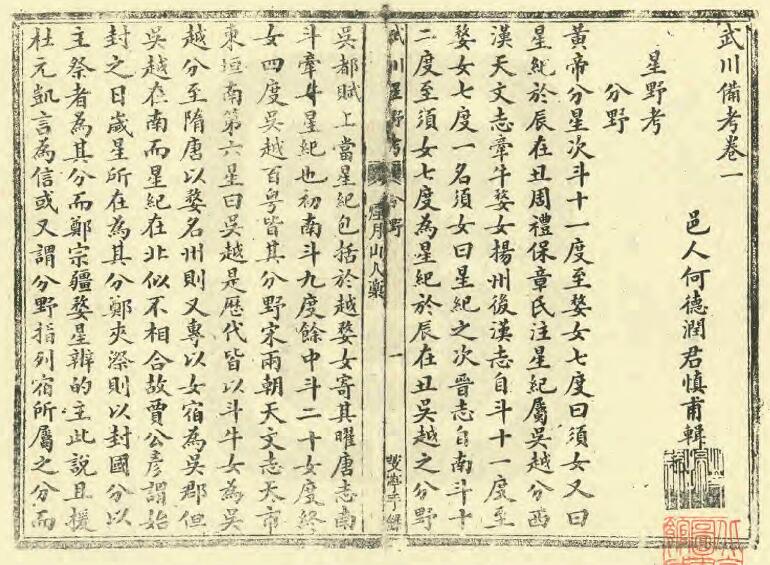 武川備考卷一
邑人何德潤君慎甫輯
星野考
分野
黃帝分星次斗十一度至婺女七度曰須女又曰
星紀於辰在丑周禮保章氏注星紀屬吳越分西
漢天文志牽牛婺女揚州後漢志自斗十一度至
婺女七度一名須女曰星紀之次晉志自南斗十
二度至須女七度為星紀於辰在丑吳越之分野
武川星野考 分野
煙月山人稾
一
吳都賦上當星紀包括於越婺女寄其曜唐志南
斗牽牛星紀也初南斗九度餘中斗二十女度終
女四度吳越百粵皆其分野宋兩朝天文志天市
東垣南第六星曰吳越是歷代皆以斗牛女為吳
越分至隋唐以婺名州則又專以女宿為吳郡但
吳越在南而星紀在北似不相合故賈公彥謂始
封之日歲星所在為其分鄭夾漈則以封國分以
主祭者為其分而鄭宗疆婺星辨的主此說且援
杜元凱言為信或又謂分野指列宿所屬之分而